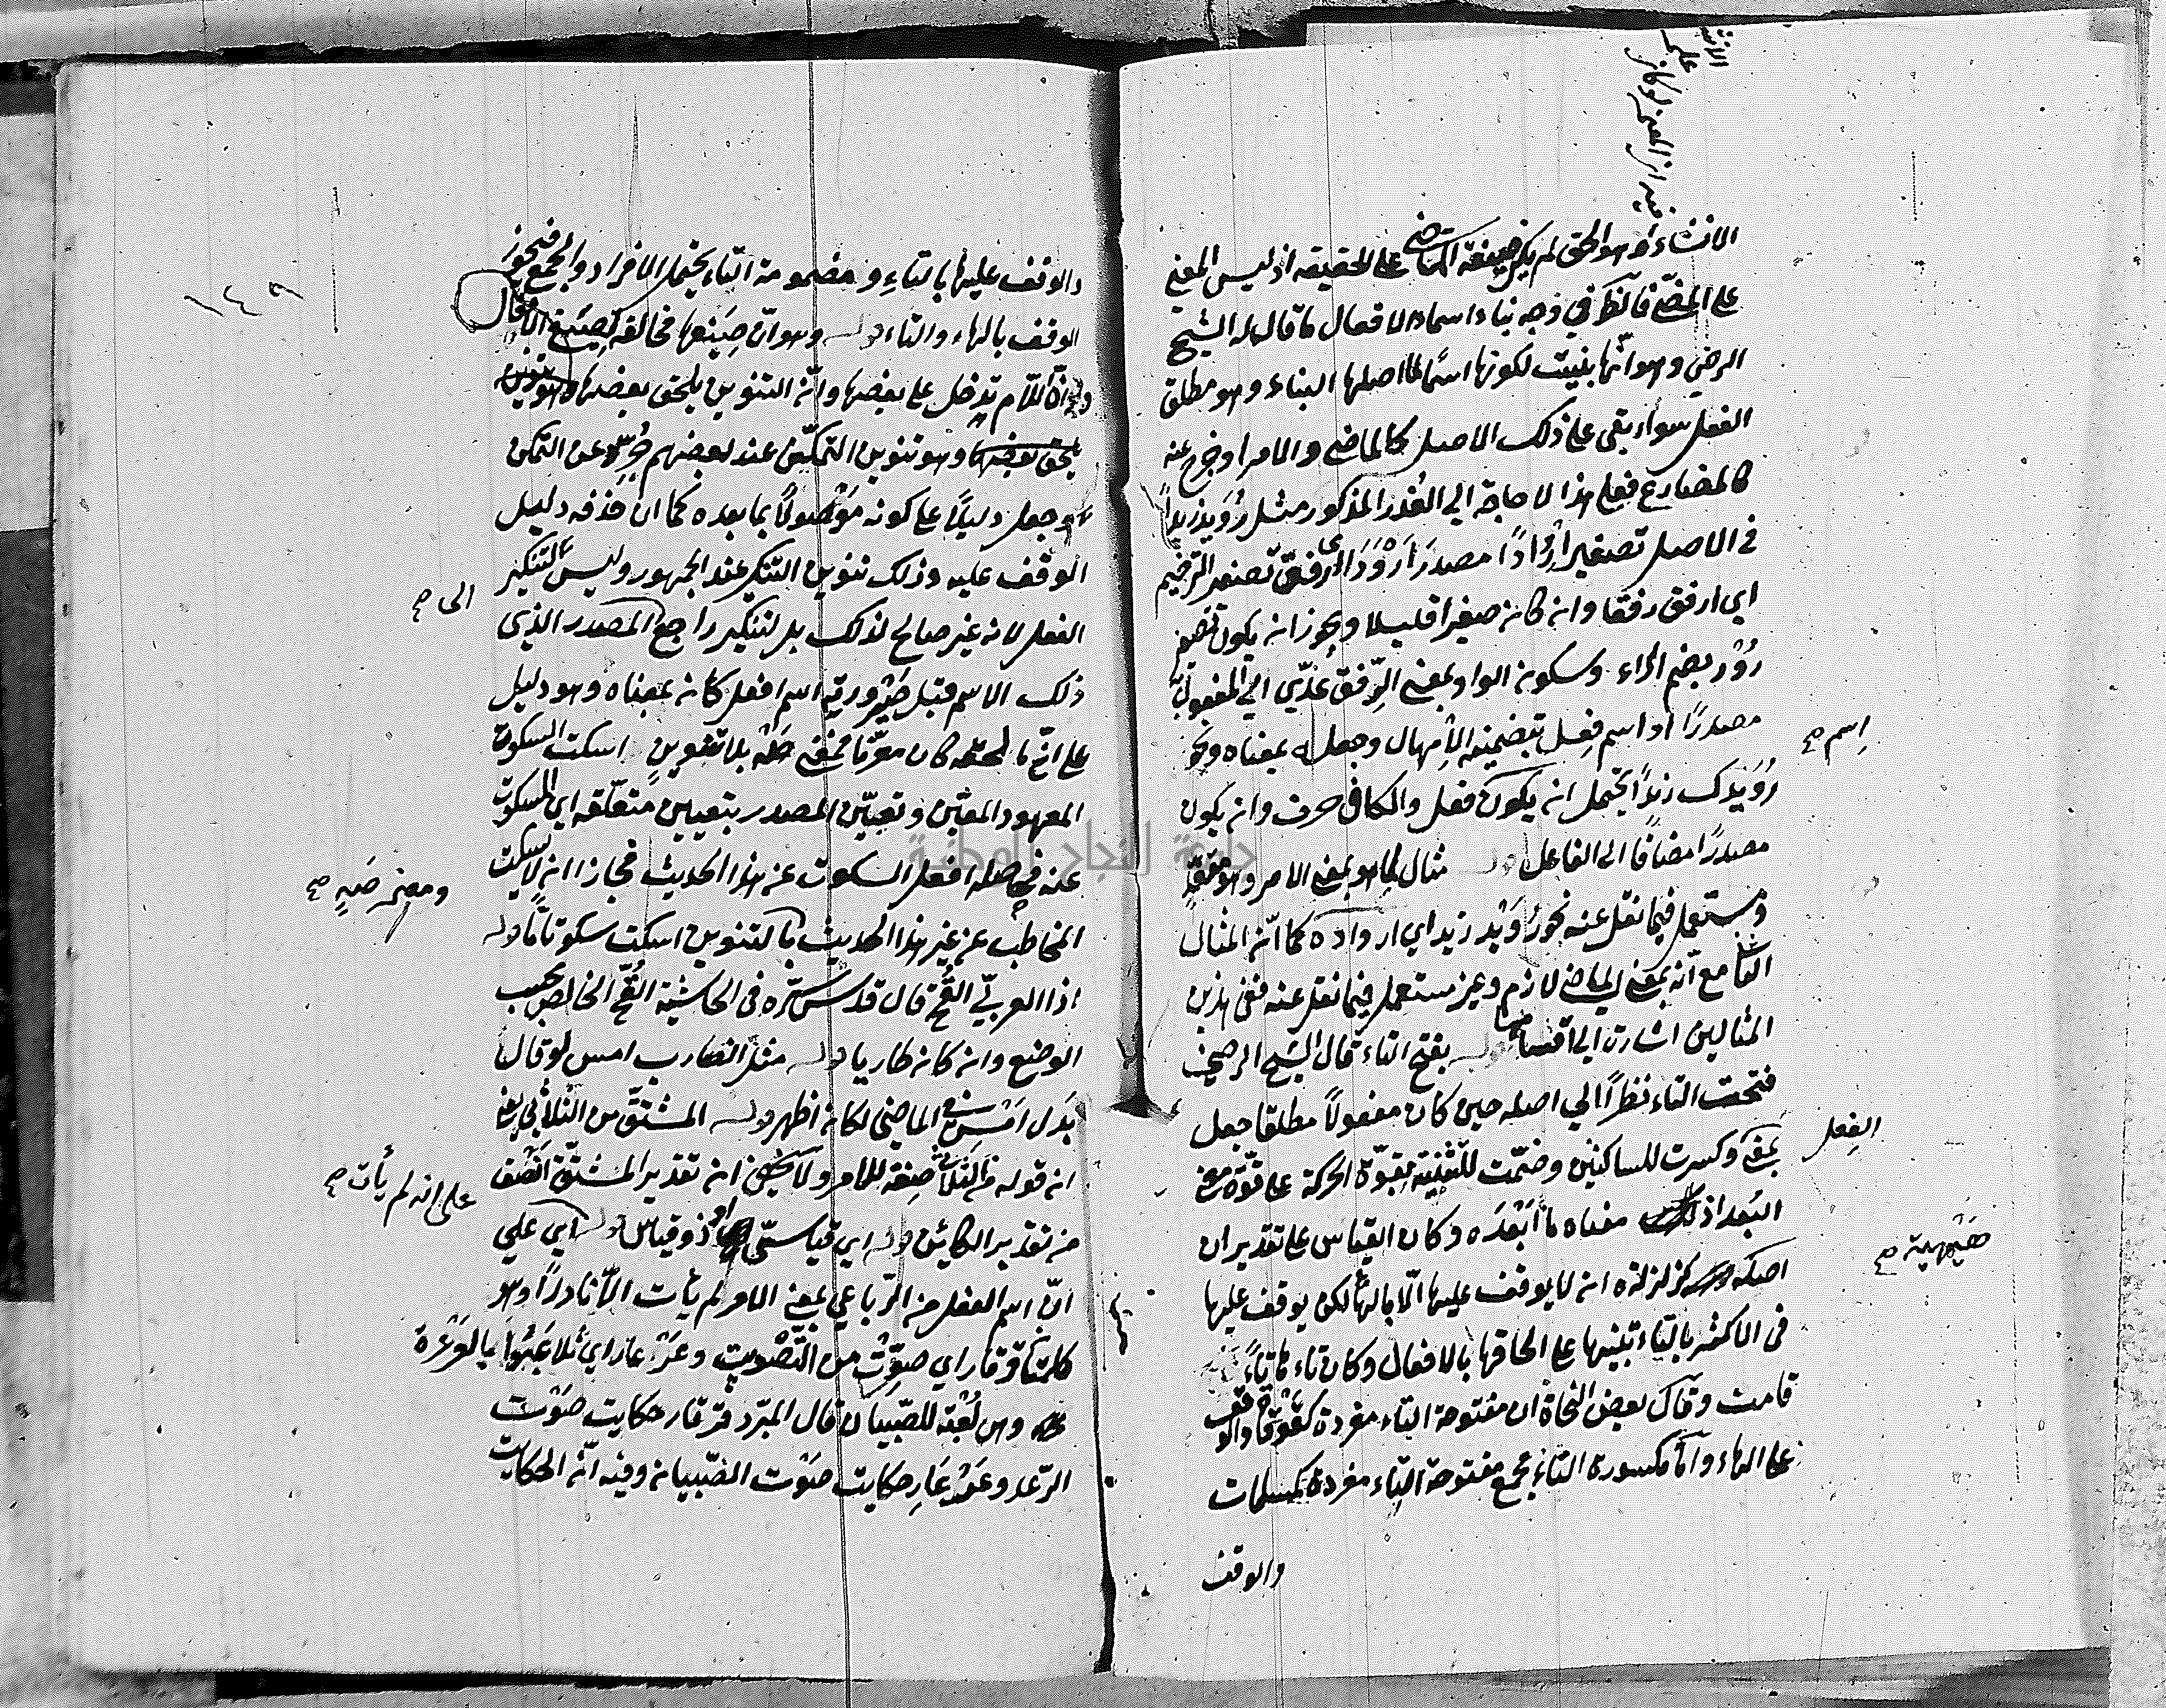 الانشاء او هو الحق لم يكن صيغة الماضي على الحقيقة اذ ليس المعنى
على المضي فالنظر في وجه بناء اسماء الافعال ما قال له الشيخ
الرضي وهو انها بنيت لكونها اسمًا لما اصلها البناء وهو مطلق
الفعل سواء بقي على ذلك الاصل كالماضي والامر او خرج عنه
كالمضارع فعلى هذا لا حاجة الى العُذر المذكور مثل رُوَيد زيدًا
في الاصل تصغير ارْوَادًا مصدر اَرْوَدَ اى رفق تصغير الترخيم
اي ارفق رفقا وان كان صغيرا قليلا ويجوز ان يكون تصغير
رُوْد بضم الراء وسكون الواو بمعنى الرِّفق عدّي الى المفعول به
مصدرًا او اسم فعل بتضمينه الامهال وجعله بمعناه ونحو
اسم صح
رُوَيدك زيدًا يحتمل ان يكون فعل والكاف حرف وان يكون
مصدرًا مضافا الى الفاعل قوله مثال لما هو بمعنى الامر وهو متعدٍّ
ومستعمل فيما نقل عنه نحو رُوَيْد زيد اي ارواده كما انّ المثال
الثاني مع انه بمعنى الماضي لازم وغير مستعمل فيما نقل عنه ففي هذين
المثالين اشارة الى اقسامها قوله بفتح التاء قال الشيخ الرضي
فتحت التاء نظرًا الى اصله حين كان مفعولا مطلقا جعل
الفعل
بمعنى وكسرت للساكنين وضمّت للتنبيه بقوّة الحركة على قوّة معنى
البُعد اذ معناه ما اَبْعَدَه وكان القياس على تقدير ان
هَيْهية صح
اصله كزلزلة ان لا يوقف عليها الّا بالهاء لكن يوقف عليها
في الاكثر بالتاء تنبيها على الحاقها بالافعال وكان تاءها تاءَ
قامت وقال بعض النحاة ان مفتوحة التاء مفردة كقَوْقاة والوقف
على الهاء وامّا مكسورة التاء فجمع مفتوحة التاء مفردة كمسلمات
والوقف
١٤٩
والوقف عليها بالتاءِ ومضمومة التاء يحتمل الافراد والجمع فيجوز
الوقف بالهاء والتاء قوله وهو انّ صِيَغها مخالفة لصِيَغ الافعال
وانّ اللّام تدخل على بعضها وانّ التنوين يلحق بعضها
وهو تنوين التمكّن عند بعضهم خُرّس عن التمكن
وجعل دليلًا على كونه مَوْصُولًا بما بعده كما ان حذفه دليل
الوقف عليه وذلك تنوين التنكير عند الجمهور وليس لتنكير
الفعل لانه غير صالح لذلك بل لتنكير راجع المصدر الذى
الى صح
ذلك الاسم قبل صَيْرورته اسم فعل كان بمعناه وهو دليل
على انّ ما لحقه كان معرّفا فمعنى صَهْ بلا تنوينٍ اسكت السكوت
المعهود المعيّن وتعيّن المصدر بتعيين متعلّقه اي المسكوت
عنه فحاصله افعل السكوت عن هذا الحديث فجاز ان لا يسكت
ومعنى صَهٍ صح
المخاطب عن غير هذا الحديث بالتنوين اسكت سكوتًا مّا قوله
اذا العربيّ القُحّ قال قدس سرّه في الحاشية القُحّ الخالص بحسب
الوضع وان كان طاريا قوله مثل الضارب امس لو قال
بَدل اَمْس في الماضي لكان اظهر قوله المشتقّ من الثلاثي يعني
ان قوله من الثلاثي صفة للامر ولا يخفى ان تقدير المشتقّ اَنْصَف
على انه لم يأت صح
من تقدير الكائن قوله اي قياسيّ او ذو قياس قوله اي على
انّ اسم الفعل من الرّباعي بمعنى الامر لم يأت الّا نادرًا وهو
كلمتا قرقار اي صوِّتْ من التّصْويت وعَرْعار اي تلاعَبُوا بالعَرْعرة
وهي لُعْبة للصّبيان قال المبرّد قرقار حكاية صَوْت
الرّعد وعَرْعَار حكاية صَوْت الصّبيان وفيه انّ الحكاية